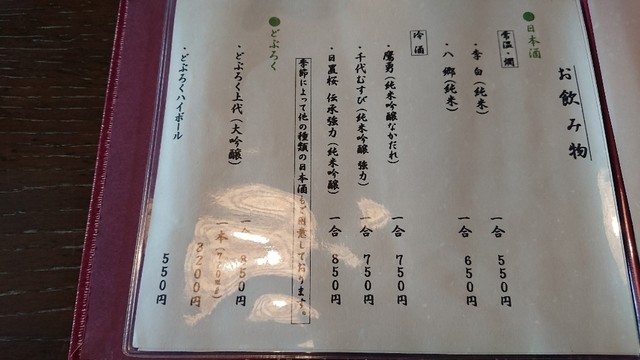 お飲み物
●日本酒
常温・燗
・李白(純米) 一合 550円
・八郷(純米) 一合 650円
冷酒
・鷹勇(純米吟醸なかだれ) 一合 750円
・千代むすび(純米吟醸 強力) 一合 750円
・日置桜 伝承強力(純米吟醸) 一合 850円
季節によって他の種類の日本酒もご用意しております。
●どぶろく
・どぶろく上代(大吟醸) 一合 850円
一本 3200円
・どぶろくハイボール 550円